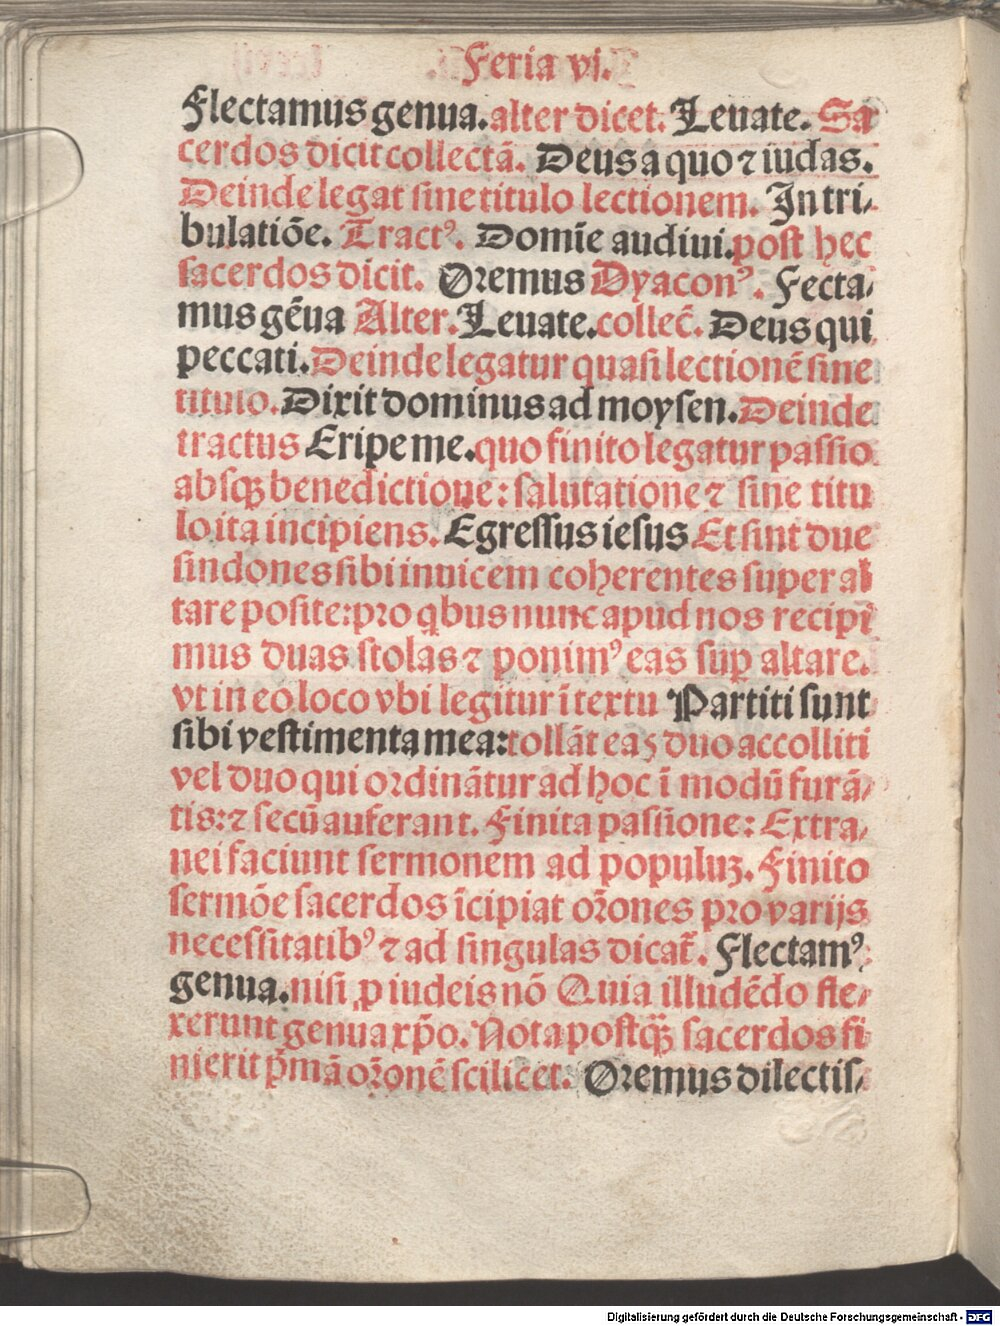 Feria vj.
Flectamus genua. alter dicet. Leuate. Sa
cerdos dicit collectā. Deus a quo ⁊ iudas.
Deinde legat sine titulo lectionem. In tri⸗
bulatiōe. Tractꝰ. Domīe audiui. post hec
sacerdos dicit. Oremus Dyaconꝰ. Fecta⸗
mus gēua Alter. Leuate. collec̄. Deus qui
peccati. Deinde legatur quasi lectionē sine
titulo. Dixit dominus ad moysen. Deinde
tractus Eripe me. quo finito legatur passio
absqꝫ benedictione: salutatione ⁊ sine titu
lo ita incipiens. Egressus iesus Et sint due
sindones sibi inuicem coherentes super al
tare posite: pro qbus nunc apud nos recipi
mus duas stolas ⁊ ponimꝰ eas suꝑ altare.
vt in eo loco vbi legitur ī textu Partiti sunt
sibi vestimenta mea: tollāt eas duo accolliti
vel duo qui ordinātur ad hoc ī modū furā⸗
tis: ⁊ secū auferant. Finita passione: Extra⸗
nei faciunt sermonem ad populuꝫ. Finito
sermōe sacerdos īcipiat orōnes pro varijs
necessitatibꝰ ⁊ ad singulas dicat̄. Flectamꝰ
genua. nisi ꝓ iudeis nō Quia illudēdo fle⸗
xerunt genua xp̄o. Nota postqꝫ̄ sacerdos fi
nierit p̄mā orōnē scilicet. Oremus dilectis⸗
Digitalisierung gefördert durch die Deutsche Forschungsgemeinschaft - DFG